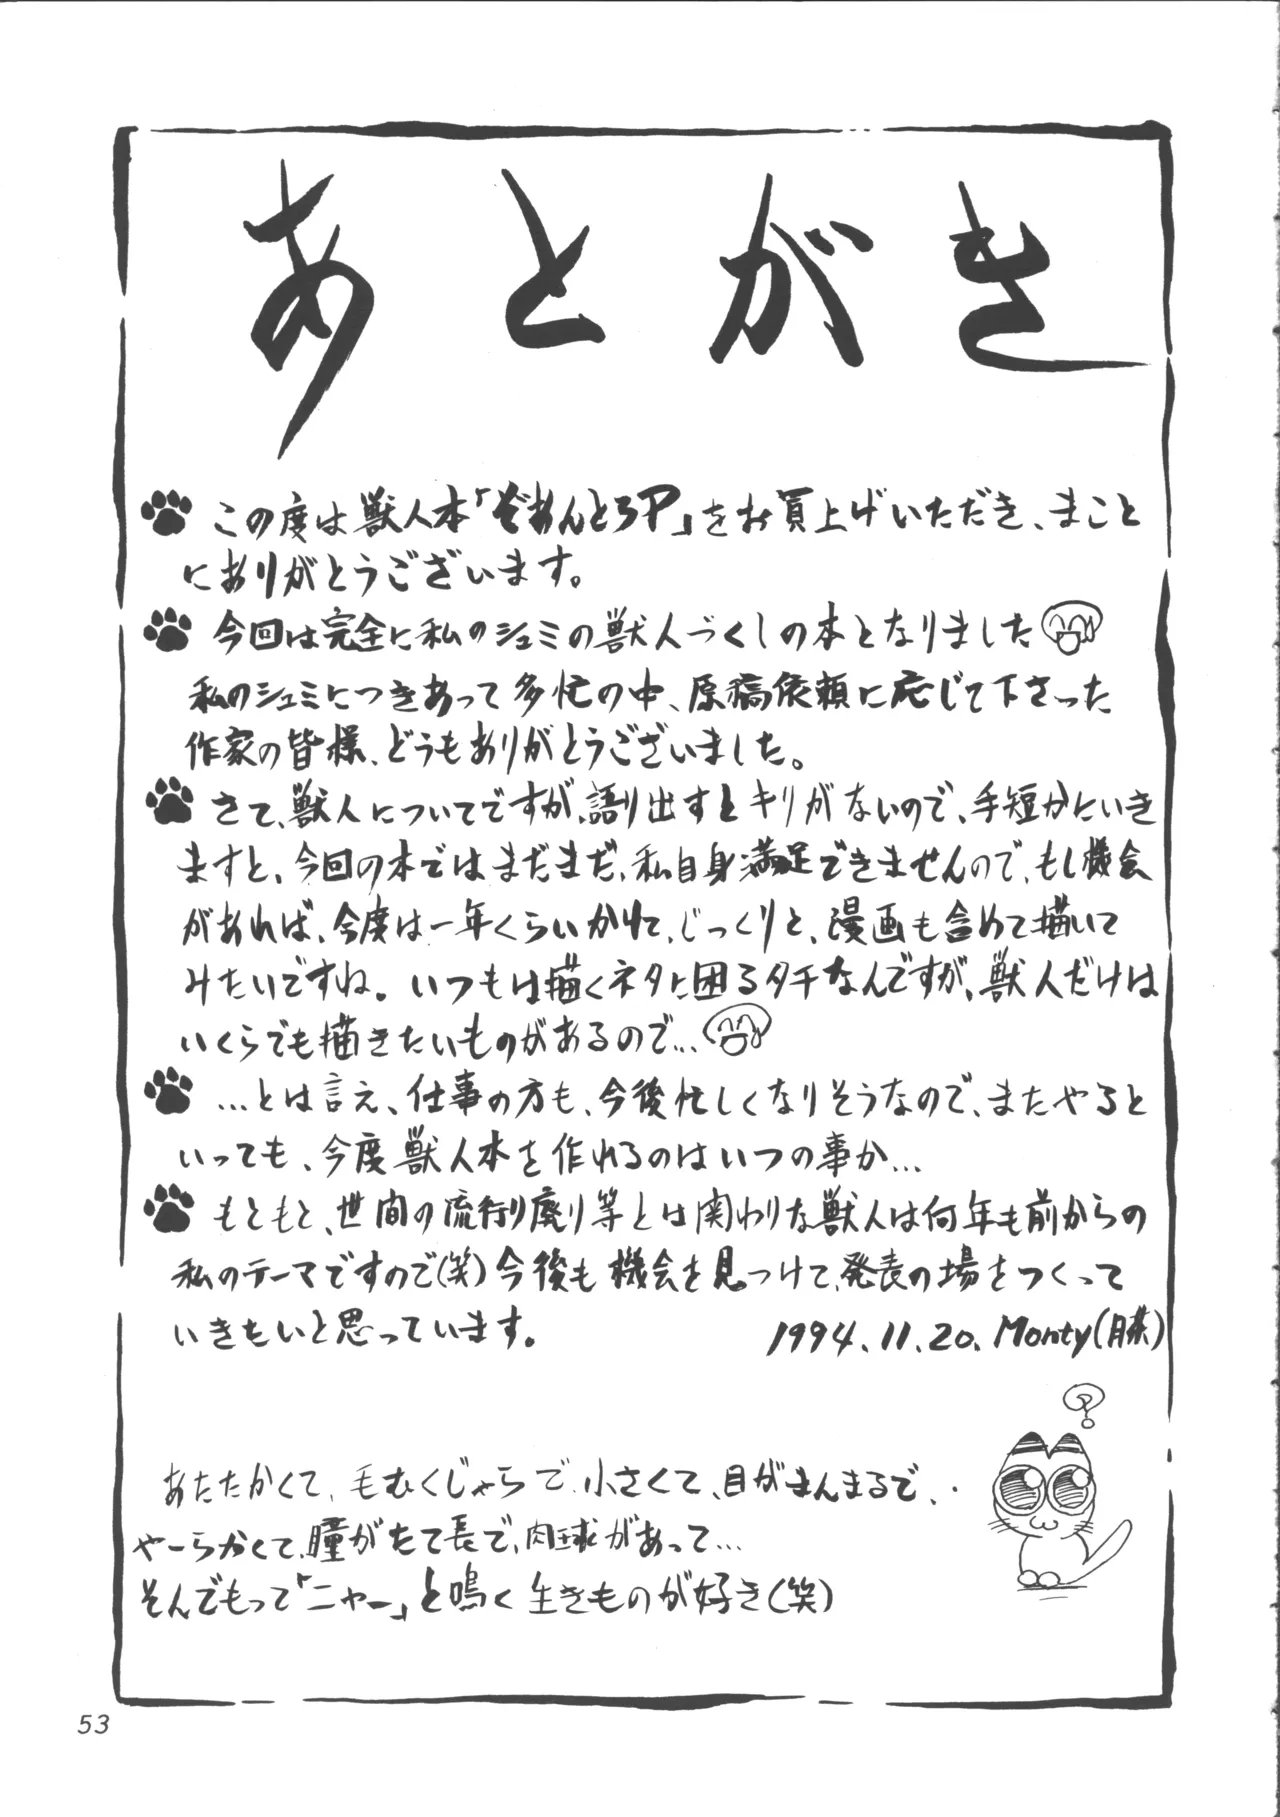 あとがき
この度は獣人本「ぞあんとろP」をお買上げいただき、まこと
にありがとうございます。
今回は完全に私のシュミの獣人づくしの本となりました
私のシュミにつきあって多忙の中、原稿依頼に応じて下さった
作家の皆様、どうもありがとうございました。
さて、獣人についてですが、語り出すとキリがないので、手短かにいき
ますと、今回の本ではまだまだ、私自身満足できませんので、もし機会
があれば、今度は一年くらいかけて、じっくりと、漫画も含めて描いて
みたいですね。いつもは描くネタに困るタチなんですが、獣人だけは
いくらでも描きたいものがあるので…
…とは言え、仕事の方も、今後忙しくなりそうなので、またやると
いっても、今度獣人本を作れるのはいつの事か…
もともと、世間の流行り廃り等とは関わりな獣人は何年も前からの
私のテーマですので(笑)今後も機会を見つけて、発表の場をつくって
いきもいと思っています。
1994.11.20. Monty( )
?
あたたかくて、毛むくじゃらで、小さくて、目がまんまるで、・
やーらかくて、瞳がたて長で、肉球があって…
そんでもって「ニャー」と鳴く生きものが好き(笑)
53